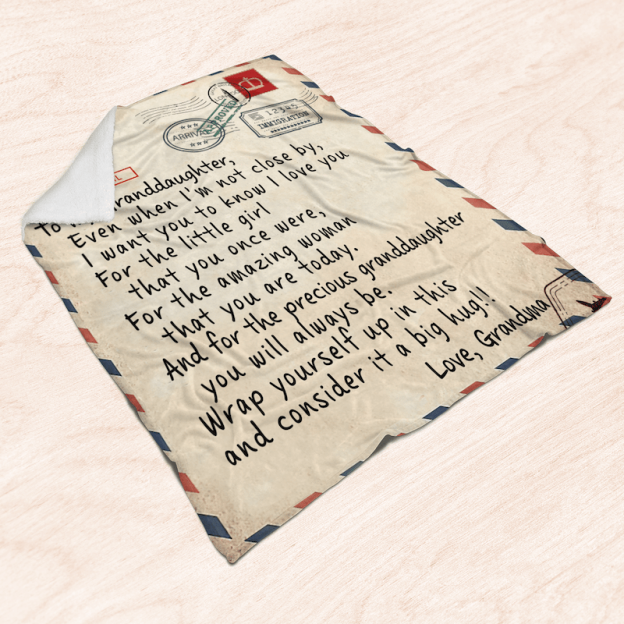 ARRIVAL
APPROVED
12345
IMMIGRATION
To granddaughter,
Even when I'm not close by,
I want you to know I love you
For the little girl
that you once were,
For the amazing woman
that you are today.
And for the precious granddaughter
you will always be.
Wrap yourself up in this
and consider it a big hug!!
Love, Grandma